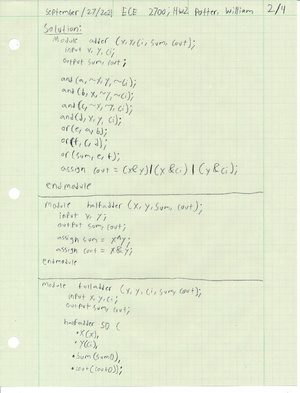 September/27/2021 ECE 2700, HW2 Potter, William 2/4
Solution:
module adder (x, y, ci, sum, cout);
input x, y, ci;
output sum, cout;
and(a, ~x, y, ~ci);
and(b, x, ~y, ~ci);
and(c, ~x, ~y, ci);
and(d, x, y, ci);
or(e, a, b);
or(f, c, d);
or(sum, e, f);
assign cout = (x&y)|(x&ci) | (y&ci);
endmodule
module halfadder (x, y, sum, cout);
input x, y;
output sum, cout;
assign sum = x^y;
assign cout = x&y;
endmodule
module fulladder (x, y, ci, sum, cout);
input x, y, ci;
output sum, cout;
halfadder S0 (
.X(x),
.Y(ci),
.sum(sum0),
.cout(cout0));